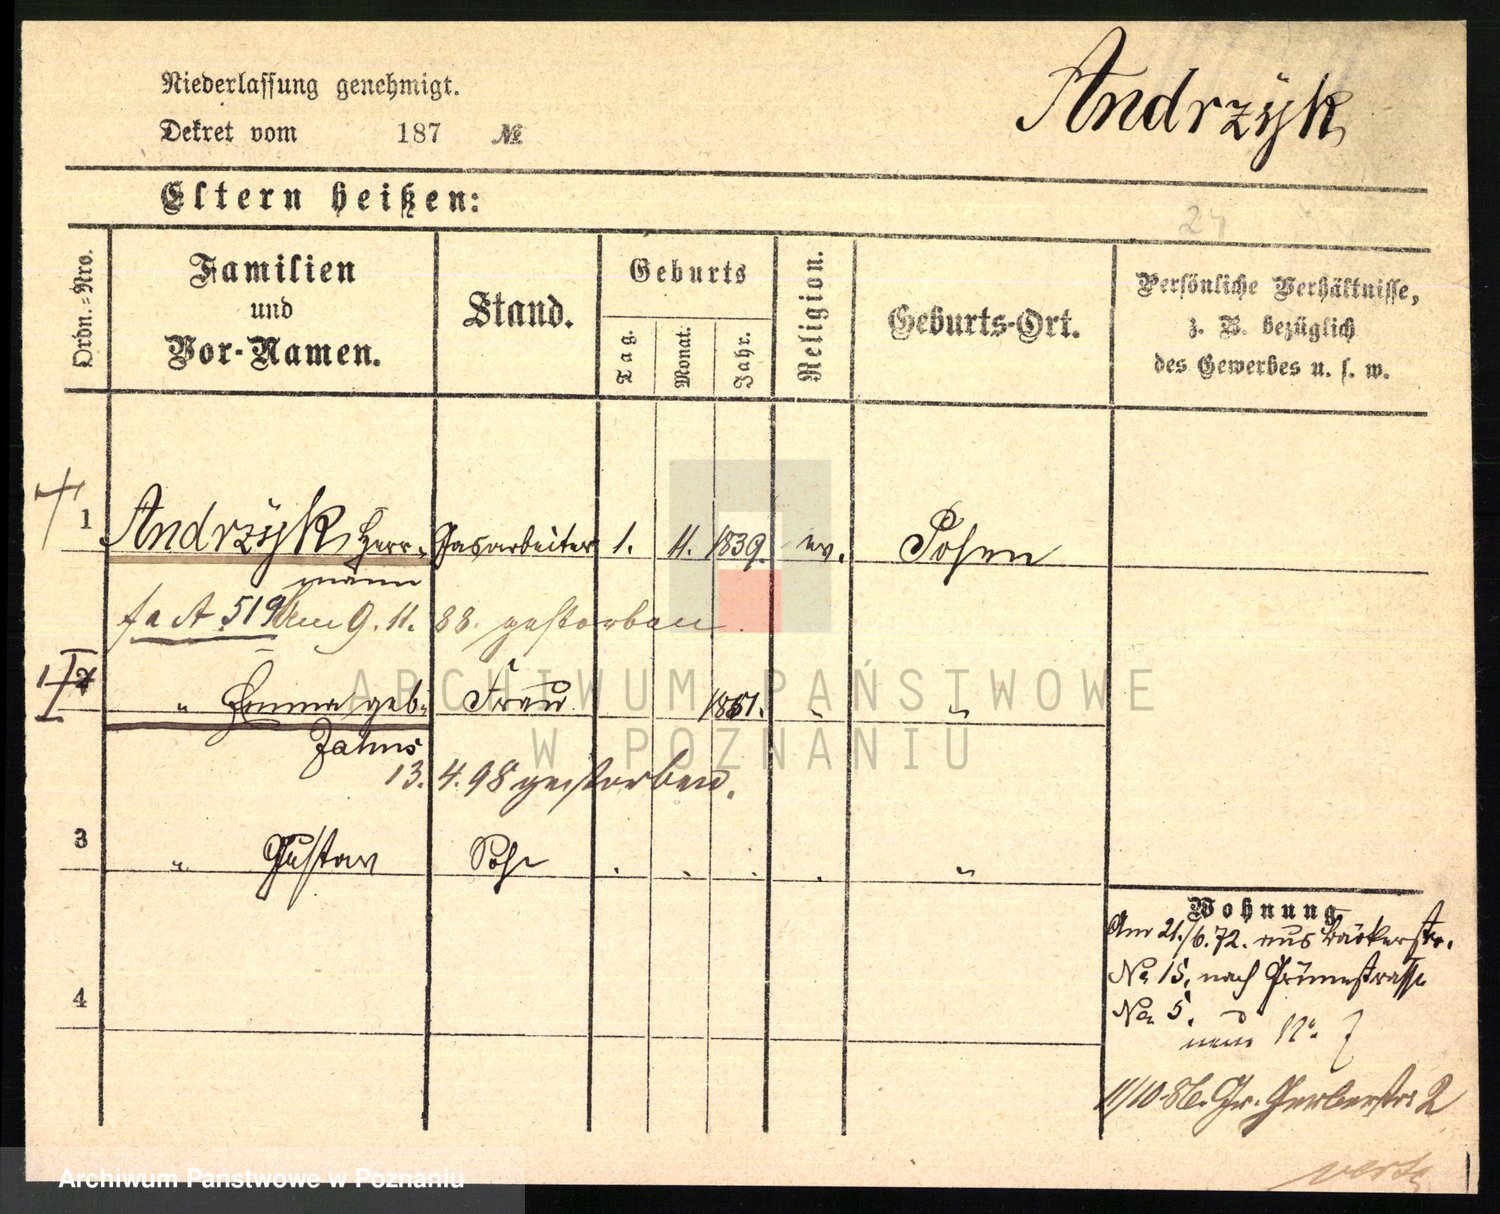 Niederlassung genehmigt.
Andrzÿk
Dekret vom 187 №
Eltern heißen:
24
Ordn.=Nro.
Familien
und
Vor-Namen.
Stand.
Geburts
Tag.
Monat.
Jahr.
Religion.
Geburts-Ort.
Persönliche Verhältnisse,
z. B. bezüglich
des Gewerbes u. s. w.
1 Andrzÿk, Herr- Gasarbeiter 1. 11. 1839. ev. Posen
mann
A 519 Am 9. 11. 88. gestorben
2 " Emma geb. Frau 1851. " "
Zahns
13. 4. 98 gestorben.
3 " Gustav Sohn . . . . "
4
Wohnung
Am 21./6.72. aus Bäckerstr.
No 15, nach Grünestrasse
No 5.
neue No 7
11/10 86. Gr. Gerberstr 2
verte
ARCHIWUM PAŃSTWOWE
W POZNANIU
Archiwum Państwowe w Poznaniu